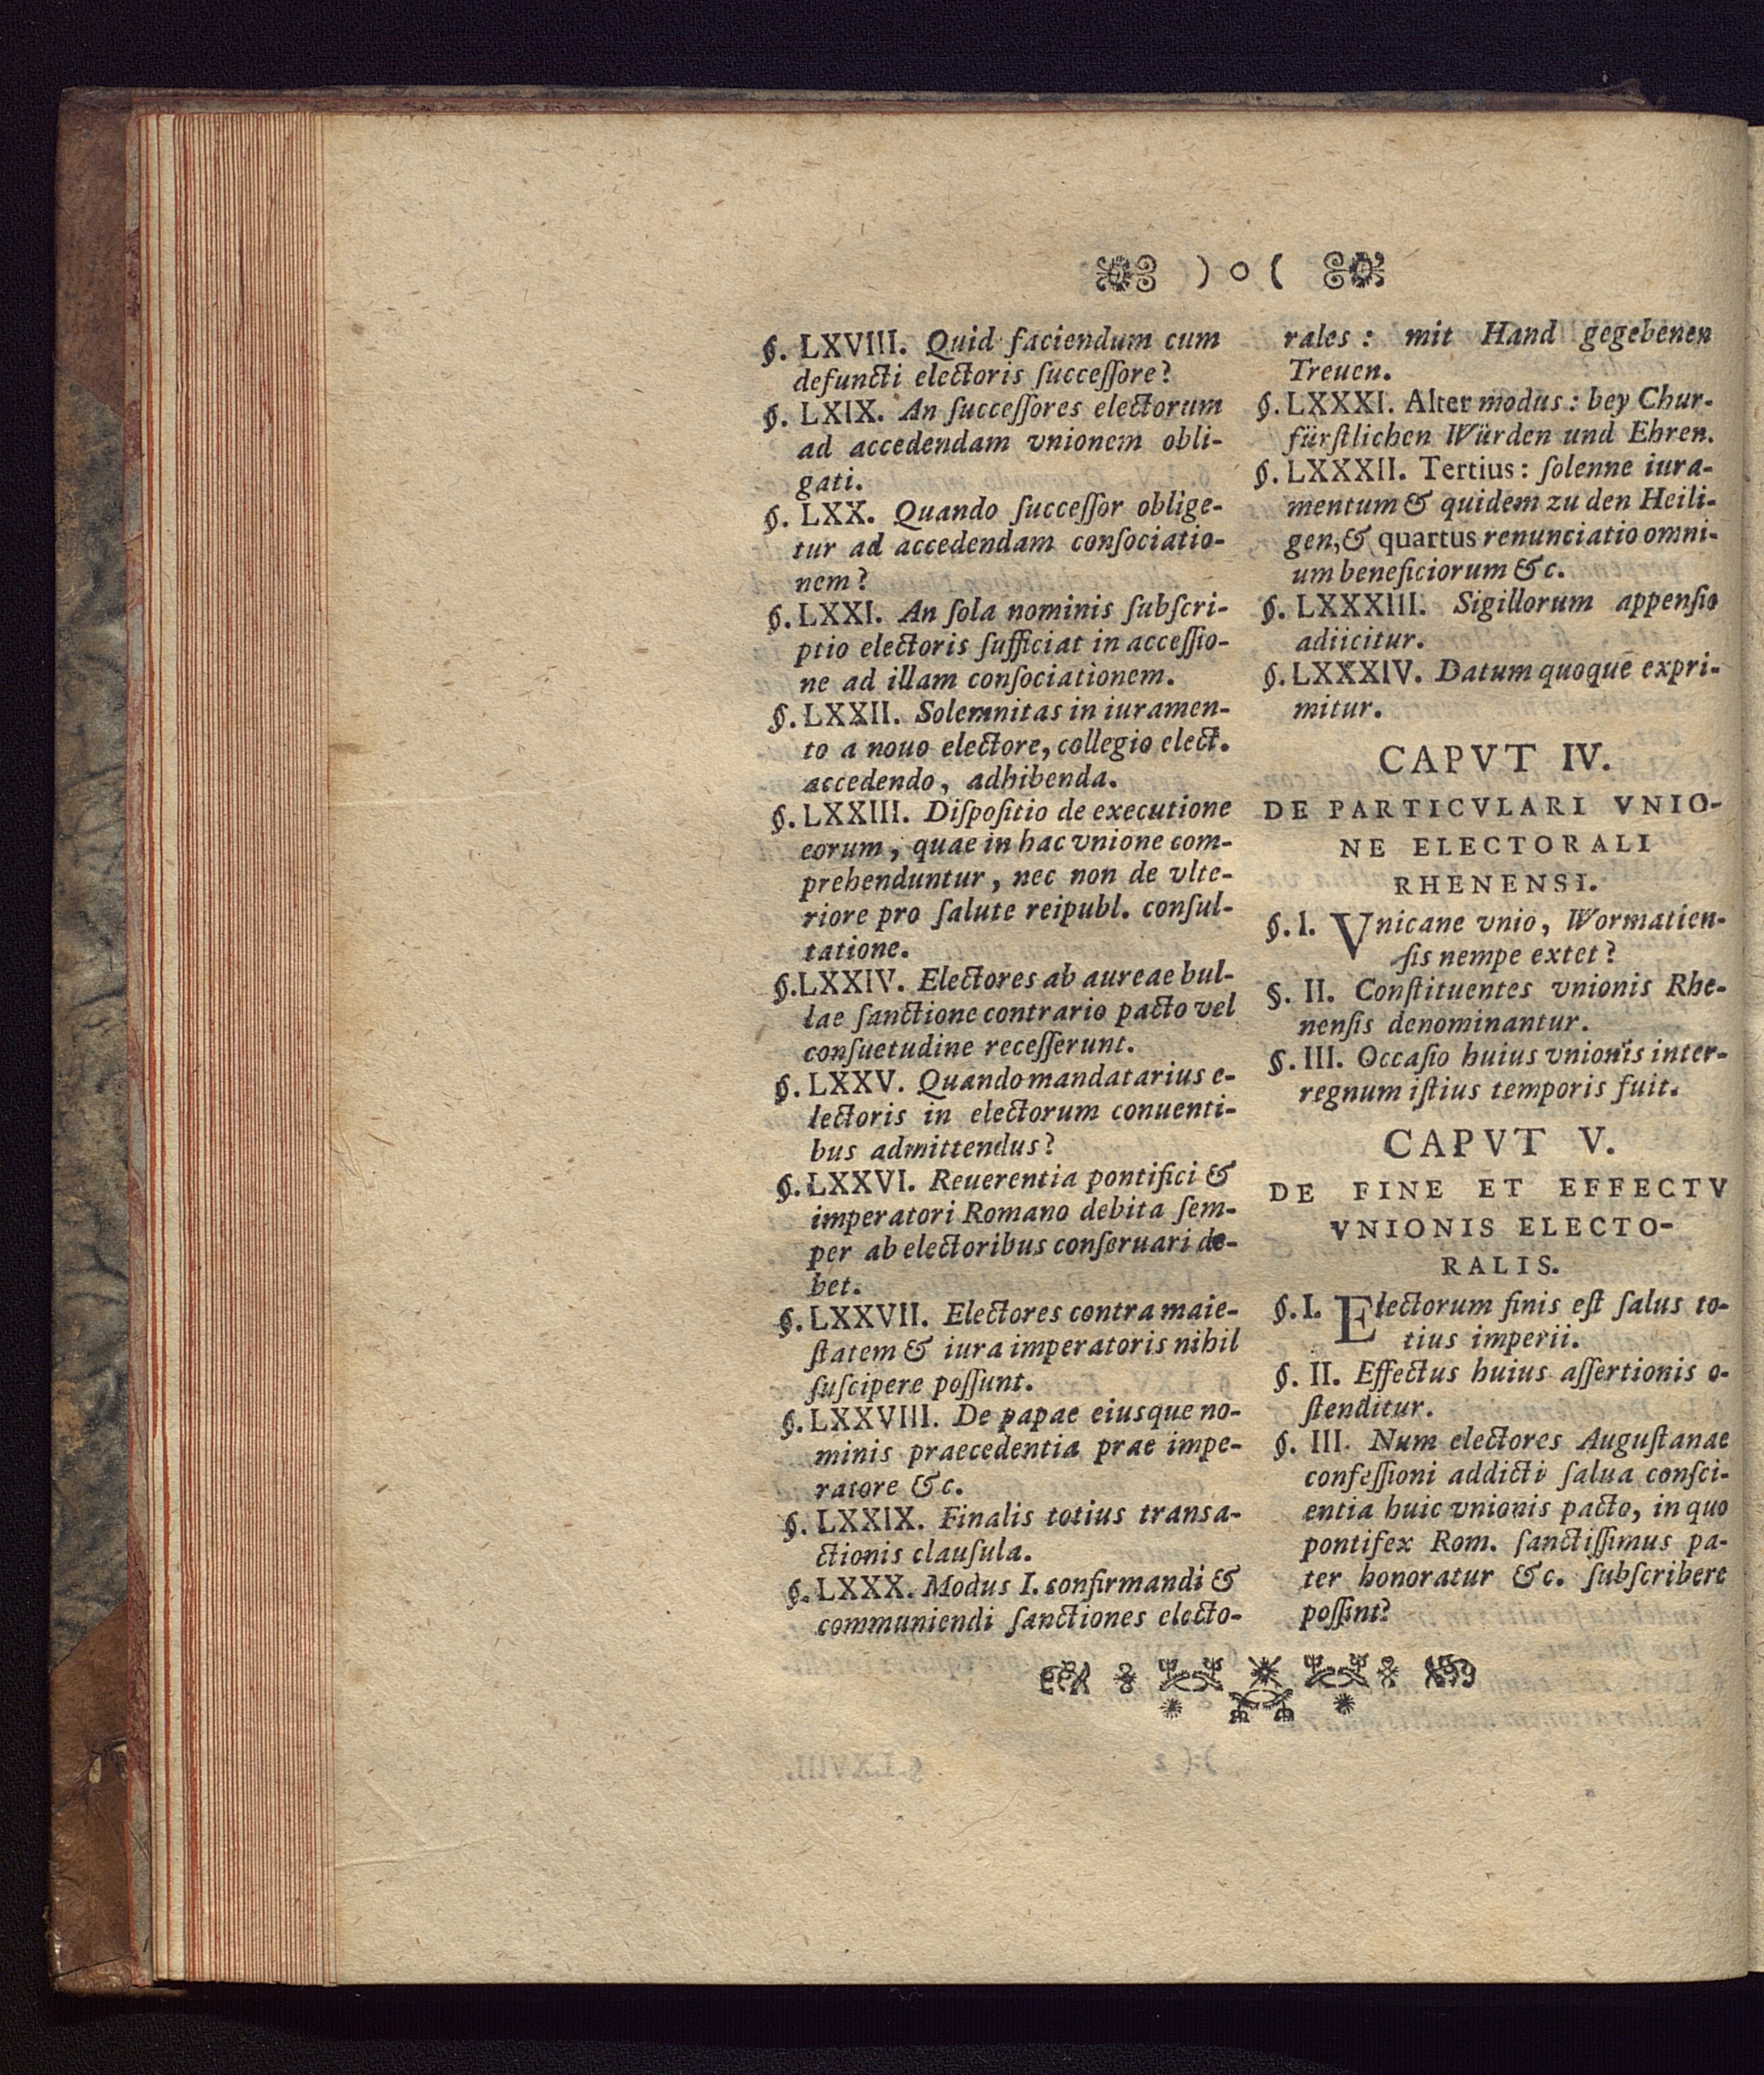 ) o (
§. LXVIII. Quid faciendum cum
defuncti electoris ſucceſſore?
§. LXIX. An ſucceſſores electorum
ad accedendam vnionem obli-
gati.
§. LXX. Quando ſucceſſor oblige-
tur ad accedendam conſociatio-
nem?
§. LXXI. An ſola nominis ſubſcri-
ptio electoris ſufficiat in acceſſio-
ne ad illam conſociationem.
§. LXXII. Solemnitas in iuramen-
to a nouo electore, collegio elect.
accedendo, adhibenda.
§. LXXIII. Diſpoſitio de executione
eorum, quae in hac vnione com-
prehenduntur, nec non de vlte-
riore pro ſalute reipubl. conſul-
tatione.
§. LXXIV. Electores ab aureae bul-
lae ſanctione contrario pacto vel
conſuetudine receſſerunt.
§. LXXV. Quando mandatarius e-
lectoris in electorum conuenti-
bus admittendus?
§. LXXVI. Reuerentia pontifici &
imperatori Romano debita ſem-
per ab electoribus conſeruari de-
bet.
§. LXXVII. Electores contra maie-
ſtatem & iura imperatoris nihil
ſuſcipere poſſunt.
§. LXXVIII. De papae eiusque no-
minis praecedentia prae impe-
ratore &c.
§. LXXIX. Finalis totius transa-
ctionis clauſula.
§. LXXX. Modus I. confirmandi &
communiendi ſanctiones electo-
rales: mit Hand gegebenen
Treuen.
§. LXXXI. Alter modus: bey Chur-
fürſtlichen Würden und Ehren.
§. LXXXII. Tertius: ſolenne iura-
mentum & quidem zu den Heili-
gen, & quartus renunciatio omni-
um beneficiorum &c.
§. LXXXIII. Sigillorum appenſio
adiicitur.
§. LXXXIV. Datum quoque expri-
mitur.
CAPVT IV.
DE PARTICVLARI VNIO-
NE ELECTORALI
RHENENSI.
§. I. Vnicane vnio, Wormatien-
ſis nempe extet?
§. II. Conſtituentes vnionis Rhe-
nenſis denominantur.
§. III. Occaſio huius vnionis inter-
regnum iſtius temporis fuit.
CAPVT V.
DE FINE ET EFFECTV
VNIONIS ELECTO-
RALIS.
§. I. Electorum finis eſt ſalus to-
tius imperii.
§. II. Effectus huius aſſertionis o-
ſtenditur.
§. III. Num electores Auguſtanae
confeſſioni addicti ſalua conſci-
entia huic vnionis pacto, in quo
pontifex Rom. ſanctiſſimus pa-
ter honoratur &c. ſubſcribere
poſſint?